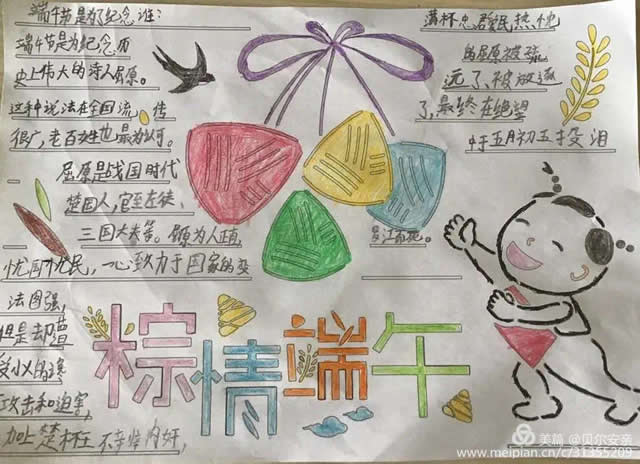 端午节是为了纪念谁:
端午节是为纪念历
史上伟大的诗人屈原。
这种说法在全国流传
很广,老百姓也最为认可。
屈原是战国时代
楚国人,官至左徒、
三闾大夫等。屈原为人正直,
忧国忧民,一心致力于国家的变
法图强,
但是却遭
受小人的
攻击和迫害,
加上楚怀王
满怀忠君爱民热忱
的屈原被疏
远了、被放逐
了,最终在绝望
于五月初五投汨
罗江而死。
粽情端午
美篇 @贝尔安亲
www.meipian.cn/c/31355209